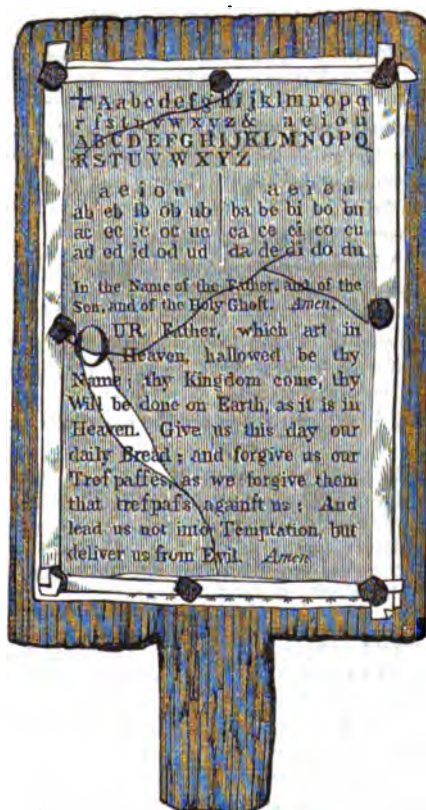 + A a b c d e f g h i j k l m n o p q
r ſ s t u v w x y z & a e i o u
A B C D E F G H I J K L M N O P Q
R S T U V W X Y Z
a e i o u a e i o u
ab eb ib ob ub ba be bi bo bu
ac ec ic oc uc ca ce ci co cu
ad ed id od ud da de di do du
In the Name of the Father, and of the
Son, and of the Holy Ghoſt. Amen.
OUR Father, which art in
Heaven, hallowed be thy
Name; thy Kingdom come, thy
Will be done on Earth, as it is in
Heaven. Give us this day our
daily Bread; and forgive us our
Treſpaſſes, as we forgive them
that treſpaſs againſt us: And
lead us not into Temptation, but
deliver us from Evil. Amen